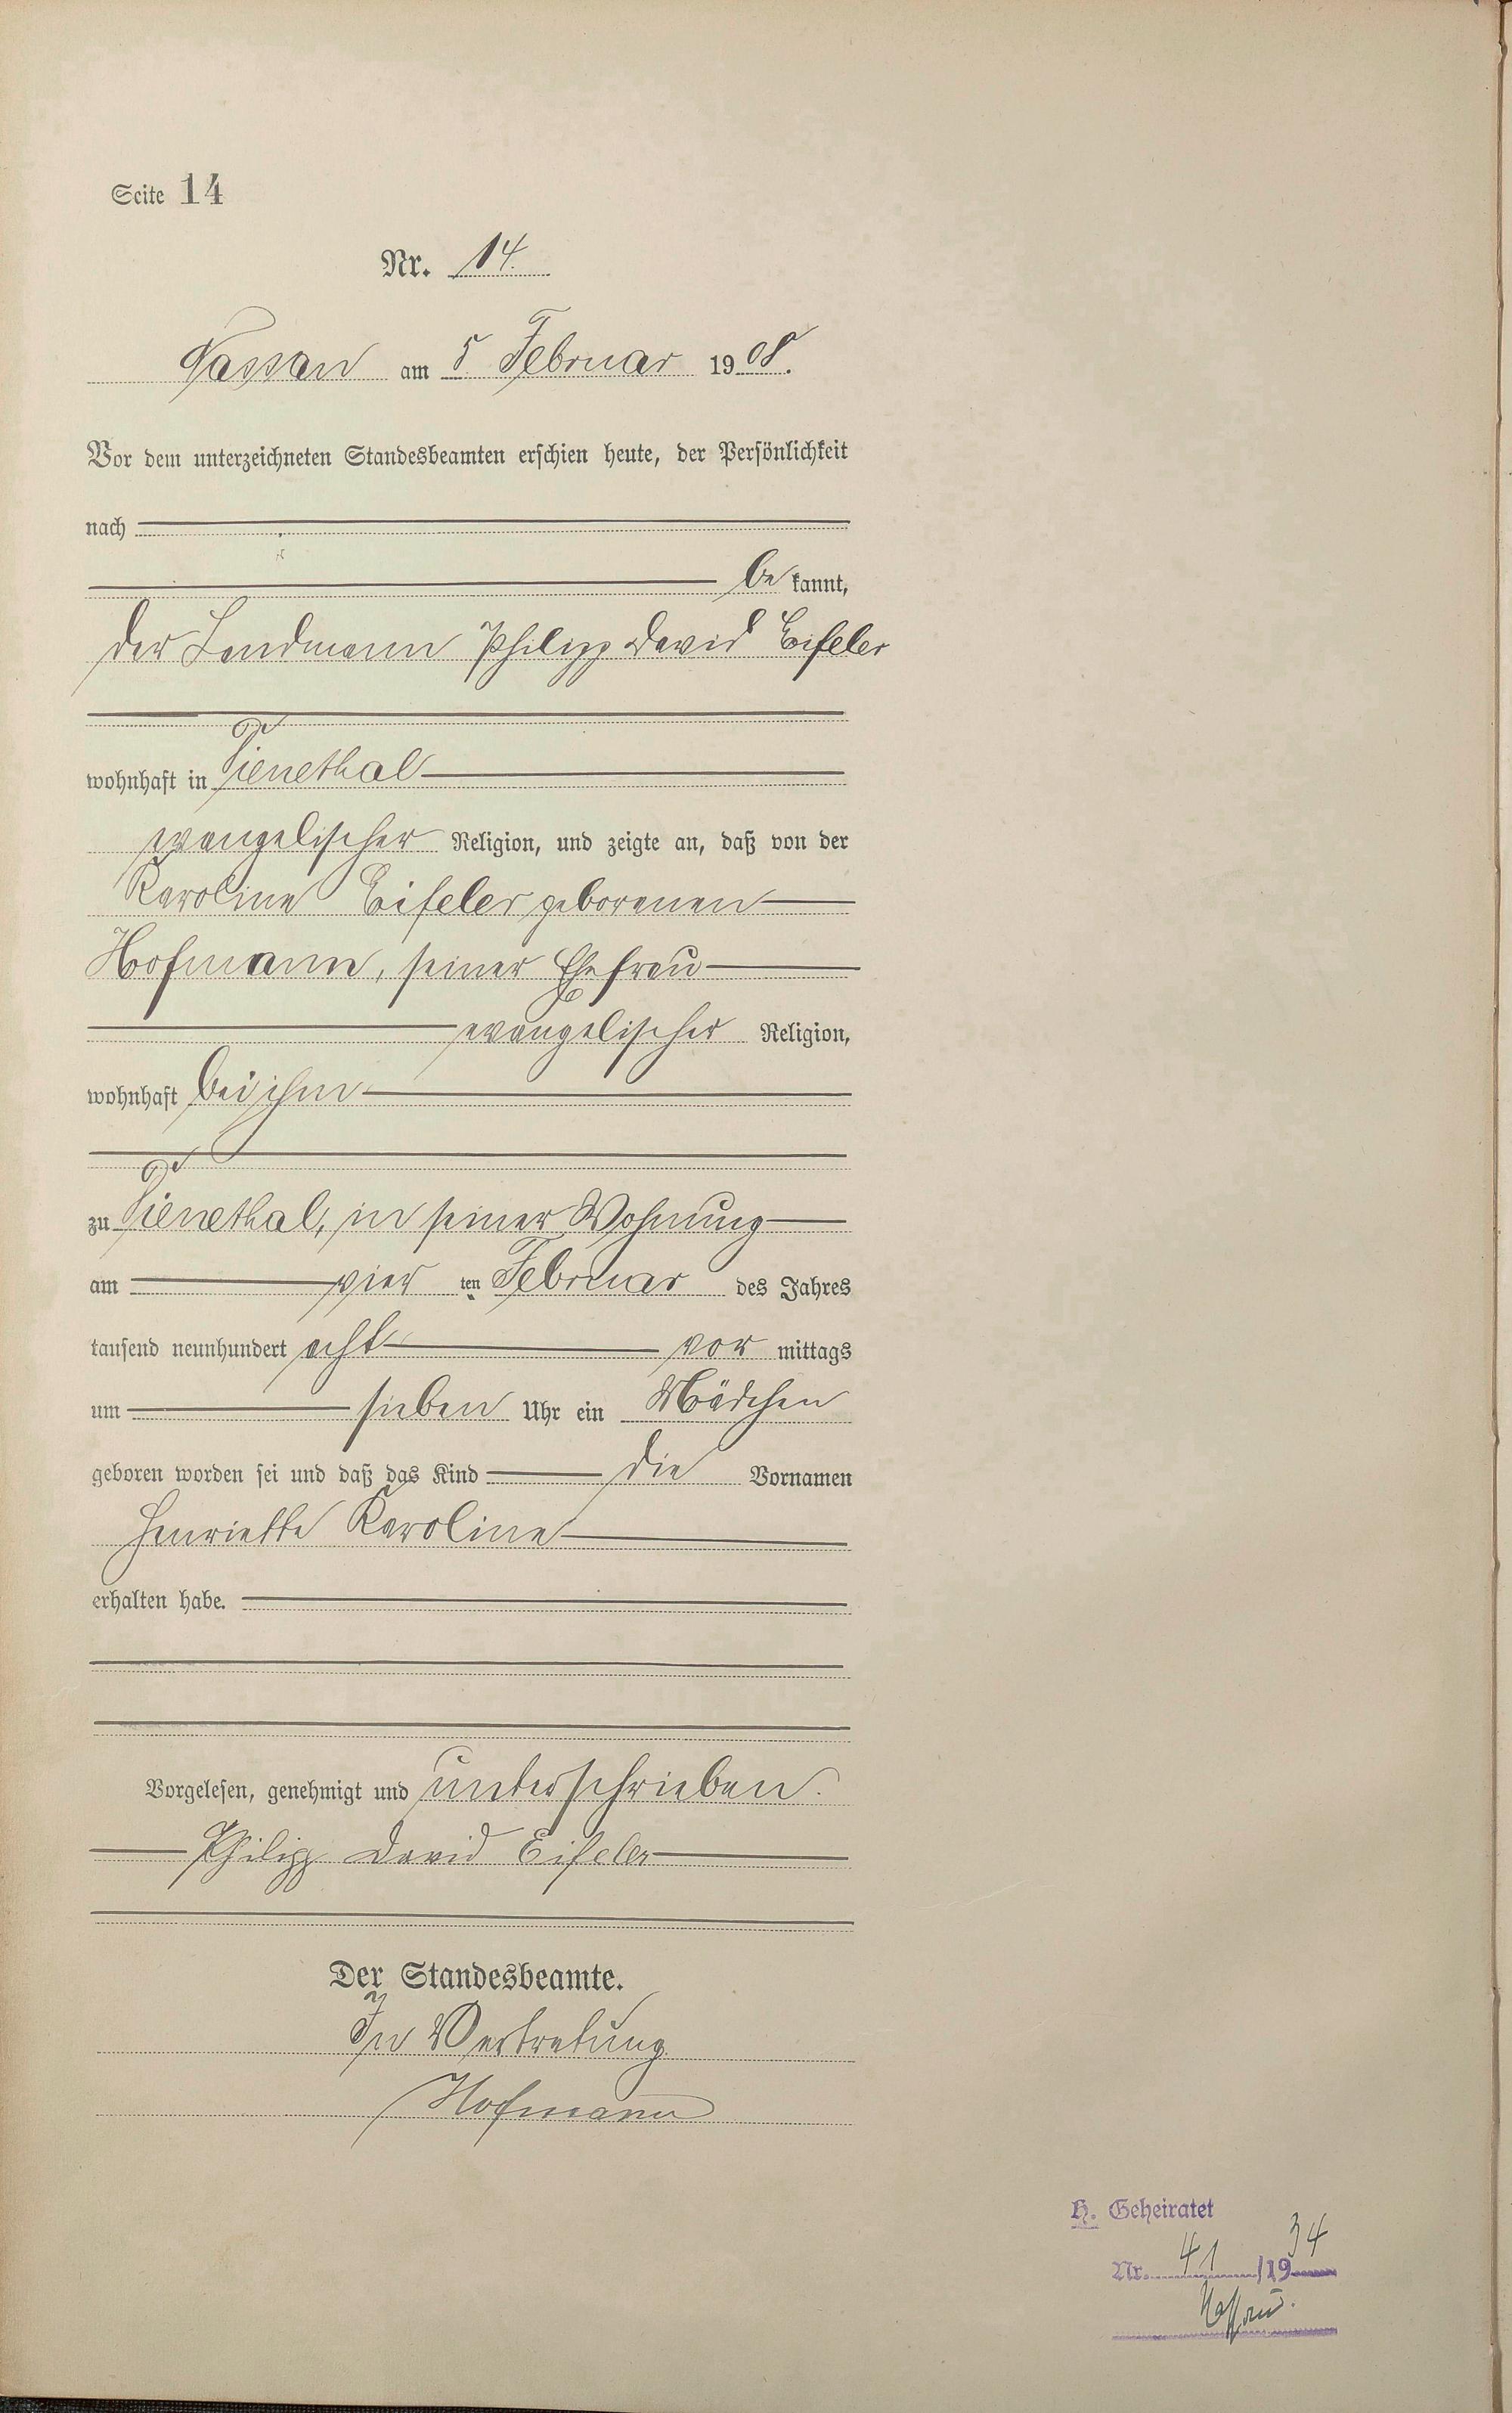 Seite 14
Nr. 14.
Nassau am 5. Februar 1908.
Vor dem unterzeichneten Standesbeamten erschien heute, der Persönlichkeit
nach
be kannt,
der Landmann Philipp David Eifeler
wohnhaft in Dienethal
evangelischer Religion, und zeigte an, daß von der
Karoline Eifeler geborenen
Hofmann, seiner Ehefrau
evangelischer Religion,
wohnhaft bei ihm
zu Dienethal, in seiner Wohnung
am vier ten Februar des Jahres
tausend neunhundert acht vor mittags
um sieben Uhr ein Mädchen
geboren worden sei und daß das Kind die Vornamen
Henriette Karoline
erhalten habe.
Vorgelesen, genehmigt und unterschrieben.
Philipp David Eifeler
Der Standesbeamte.
In Vertretung
Hofmann
H. Geheiratet
Nr. 41 /1934
Nassau.